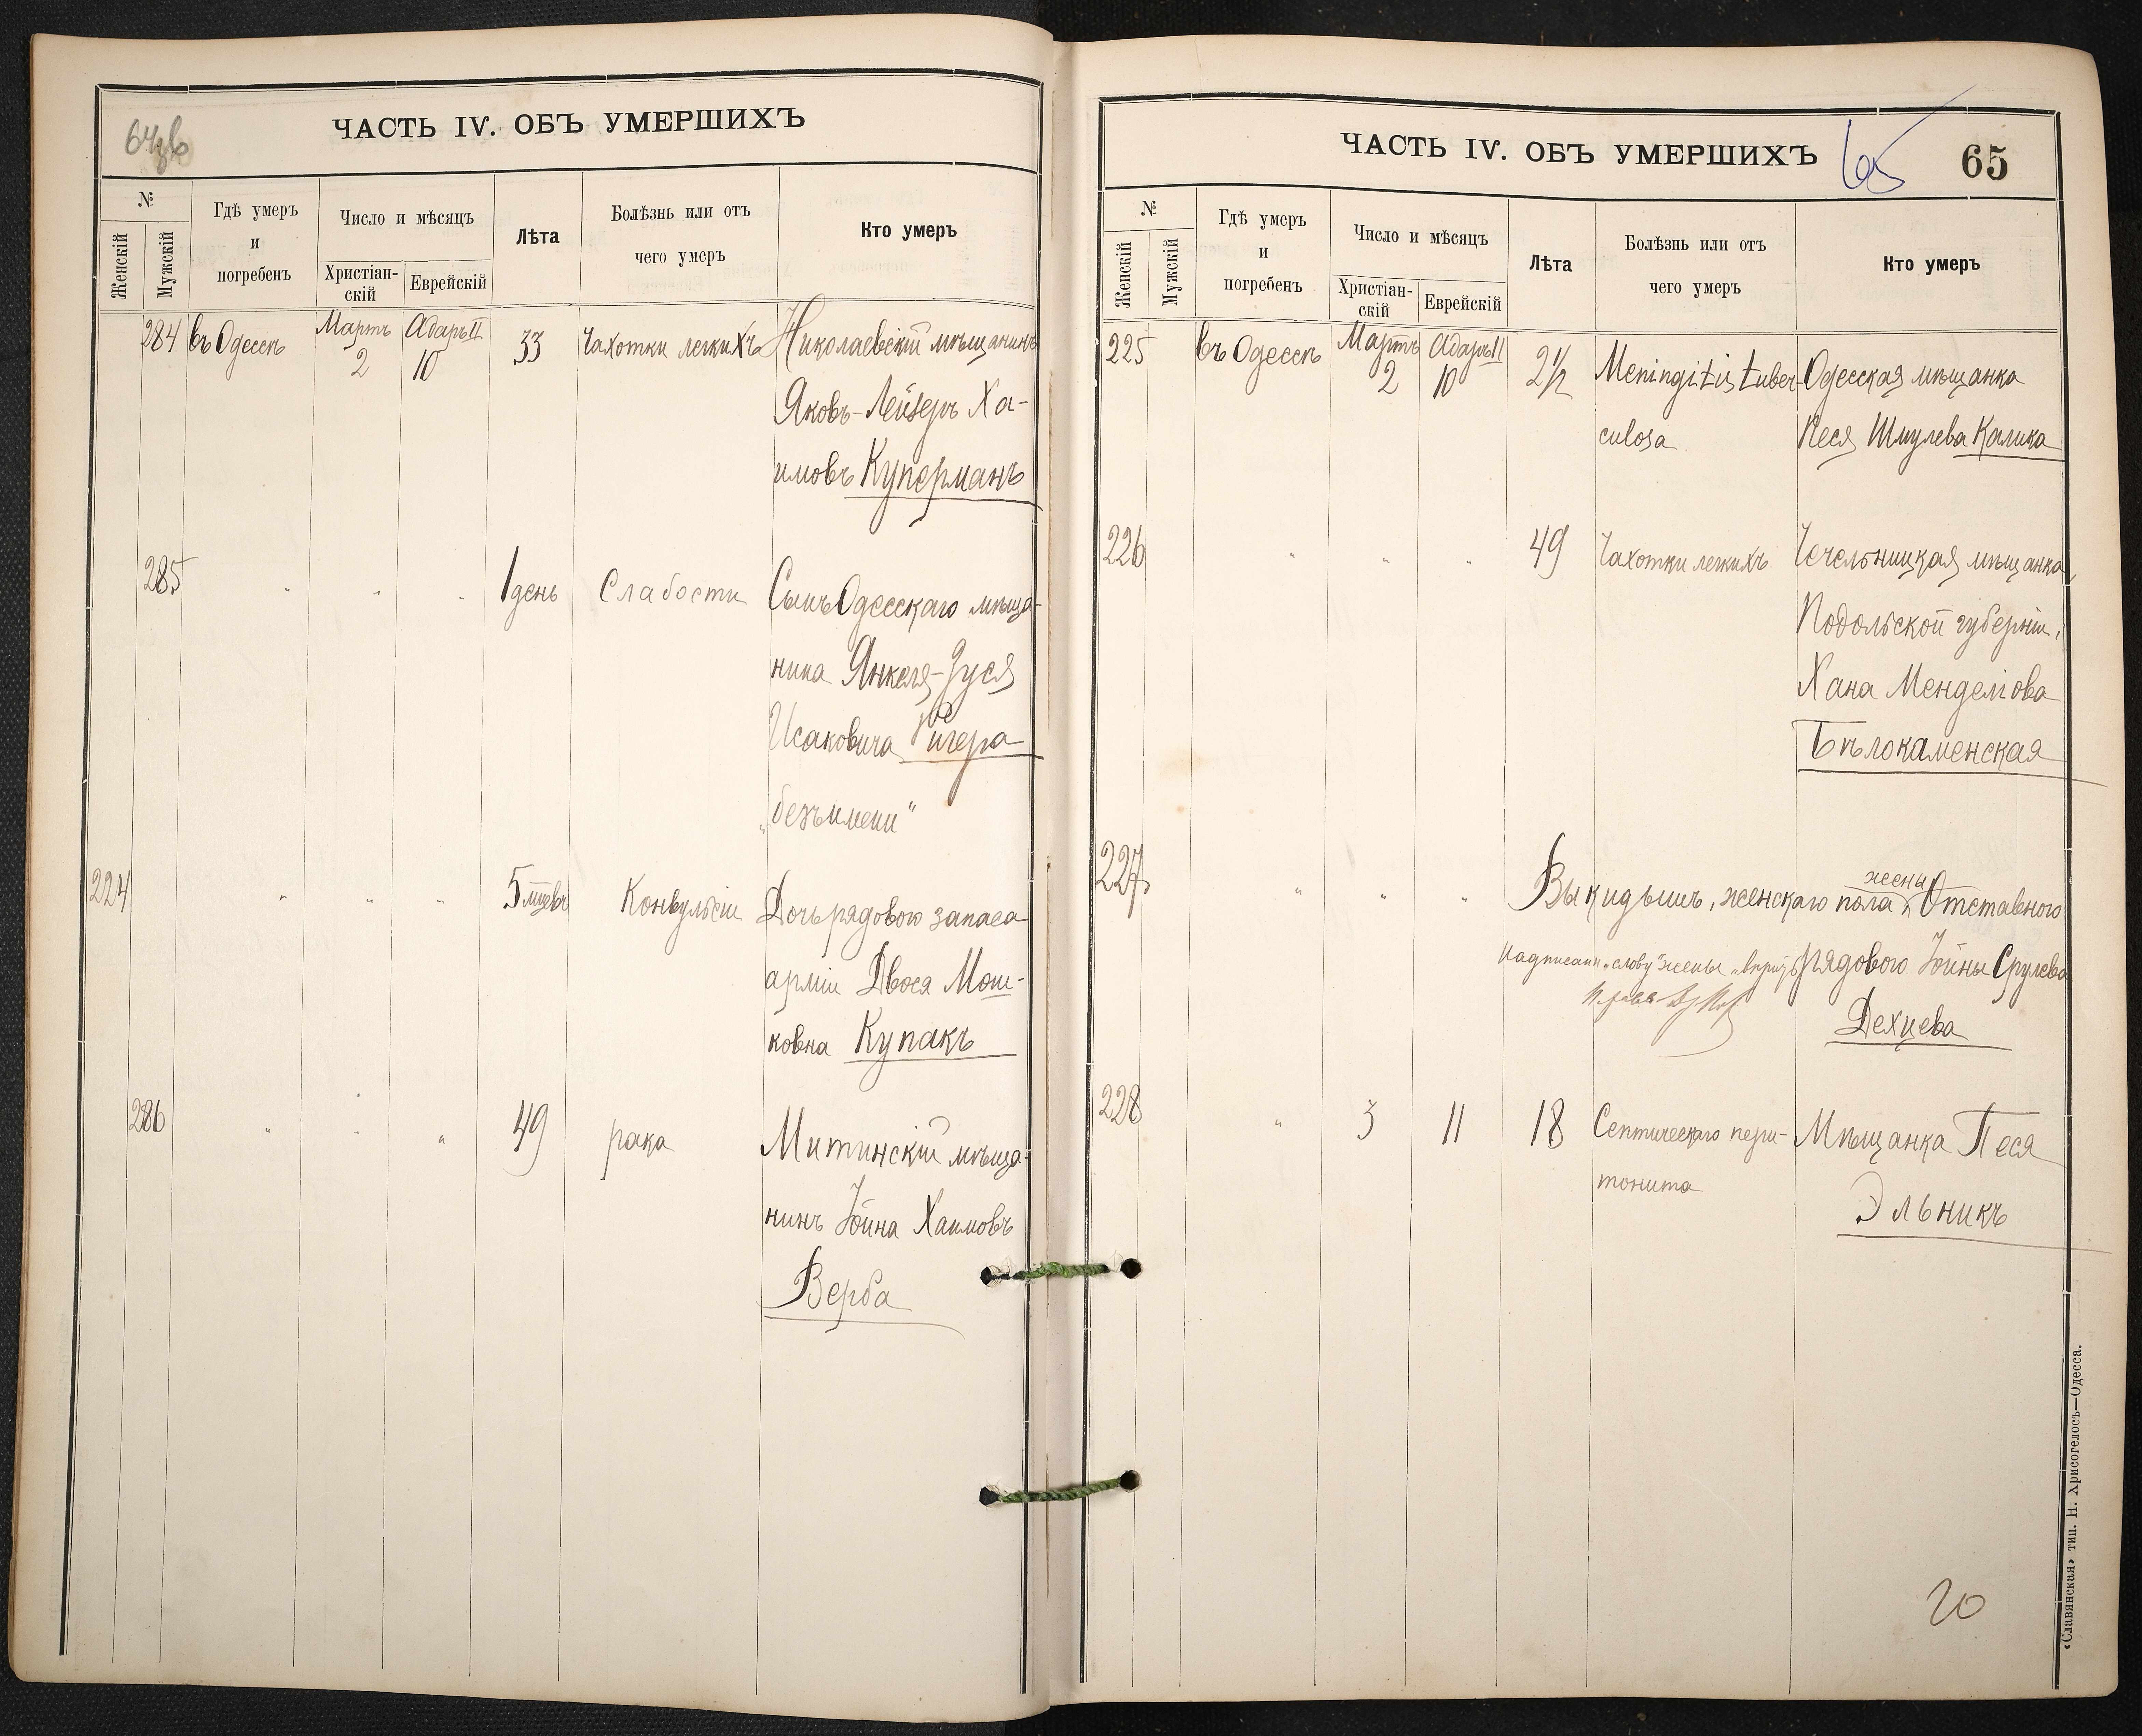 64об
ЧАСТЬ IV. ОБЪ УМЕРШИХЪ
№
Женскій
Мужскій
Гдѣ умеръ
и
погребенъ
Число и мѣсяцъ
Христіан-
скій
Еврейскій
Лѣта
Болѣзнь или отъ
чего умеръ
Кто умеръ
284 въ Одессѣ Мартъ 2 Адаръ II 10 33 Чахотки легкихъ Николаевскій мѣщанинъ
Яковъ-Лейзеръ Ха-
имовъ Куперманъ
285 " " " 1 день Слабости Сынъ Одесскаго мѣща-
нина Янкеля-Зуся
Исаковича Ригера
"безъ имени"
224 " " " 5 мцевъ Конвульсіи Дочь рядового запаса
арміи Двося Мош-
ковна Купакъ
286 " " " 49 рака Митинскій мѣща-
нинъ Іойна Хаимовъ
Верба
ЧАСТЬ IV. ОБЪ УМЕРШИХЪ
65
65
№
Женскій
Мужскій
Гдѣ умеръ
и
погребенъ
Число и мѣсяцъ
Христіан-
скій
Еврейскій
Лѣта
Болѣзнь или отъ
чего умеръ
Кто умеръ
225 въ Одессѣ Мартъ 2 Адаръ II 10 2 1/2 Meningitis tuber- Одесская мѣщанка
culosa Песя Шмулева Калика
226 " " " 49 Чахотки легкихъ Чечельницкая мѣщанка,
Подольской губерніи,
Хана Менделіова
Бѣлокаменская
227 " " " Выкидышъ, женскаго пола жены Отставного
Надписанн. слову "жены" вѣрить рядового Іойны Срулева
Дехцева
228 " 3 11 18 Септическаго пери- Мѣщанка Песя
тонита Эльникъ
20
«Славянская» тип. Н. Хрисогелосъ—Одесса.